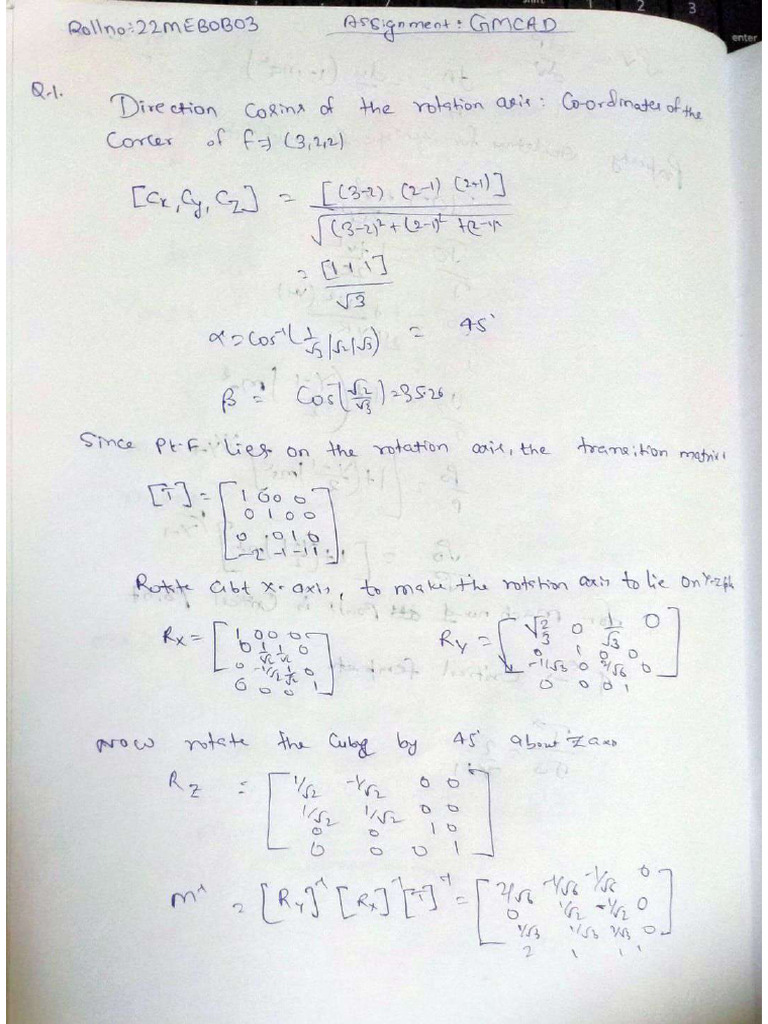 Rollno: 22MEB0B03 Assignment: GMCAD
Q-1. Direction Cosins of the rotation axis: Co-ordinates of the
Corcer of F=) (3,2,2)
[Cx, Cy, Cz] = [(3-2) (2-1) (2+1)]
√(3-2)²+(2-1)²+(2-1)²
= [1 1 1]
√3
α = Cos⁻¹(1/√3 / √2 / √3) = 45°
β = Cos⁻¹(√2/√3) = 35.26
Since Pt. F. lies on the rotation axis, the transition matrix
[T] = [1 0 0 0
0 1 0 0
0 0 1 0
-2 -1 -1 1]
Rotate abt x-axis, to make the rotation axis to lie on
Rx = [1 0 0 0 Ry = [√2/3 0 1/√3 0
0 1/√2 1/√2 0 0 1 0 0
0 -1/√2 1/√2 0 -1/√3 0 2/√6 0
0 0 0 1] 0 0 0 1]
Now rotate the Cube by 45° about Z axis
Rz = [1/√2 -1/√2 0 0
1/√2 1/√2 0 0
0 0 1 0
0 0 0 1]
= [Ry]⁻¹ [Rx]⁻¹ [T]⁻¹ = [2/√6 -1/√6 -1/√6 0
0 1/√2 -1/√2 0
1/√3 1/√3 0
2 1 1 1]
enter
2
3